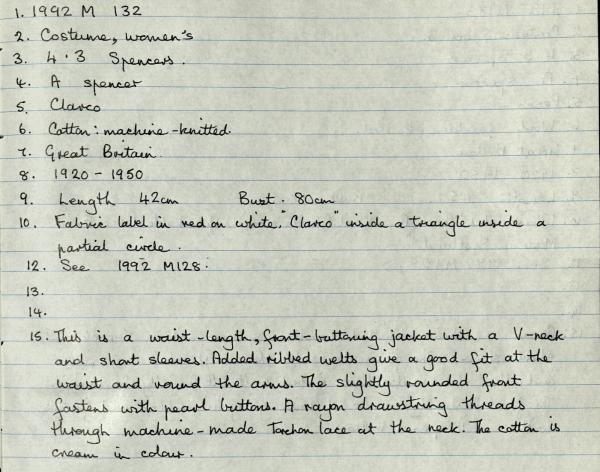 1. 1992 M 132
2. Costume, women's
3. 4.3 Spencers.
4. A spencer
5. Clarco
6. Cotton: machine-knitted.
7. Great Britain.
8. 1920 - 1950
9. Length 42cm Bust. 80cm
10. Fabric label in red on white, "Clarco" inside a triangle inside a
partial circle.
12. See 1992 M128.
13.
14.
15. This is a waist-length, front-buttoning jacket with a V-neck
and short sleeves. Added ribbed welts give a good fit at the
waist and round the arms. The slightly rounded front
fastens with pearl buttons. A rayon drawstring threads
through machine-made Torchon lace at the neck. The cotton is
cream in colour.